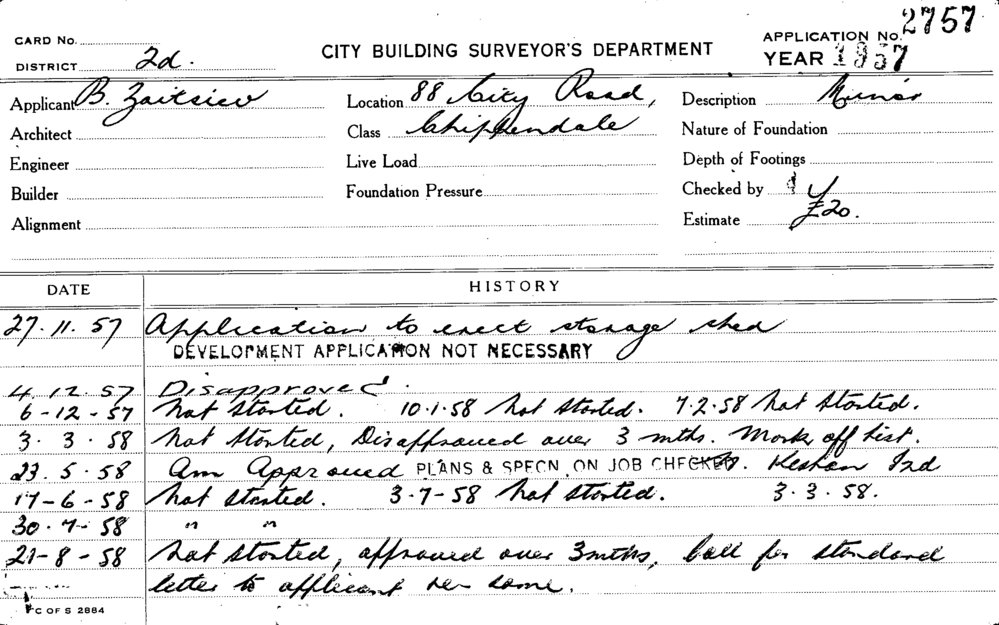 CARD No.
DISTRICT 2d.
CITY BUILDING SURVEYOR'S DEPARTMENT
APPLICATION No. 2757
YEAR 1957
Applicant B. Zaitsiev Location 88 City Road, Description Minor
Architect Class Chippendale Nature of Foundation
Engineer Live Load Depth of Footings
Builder Foundation Pressure Checked by
Alignment Estimate £20.
DATE HISTORY
27.11.57 Application to erect storage shed
DEVELOPMENT APPLICATION NOT NECESSARY
4.12.57 Disapproved.
6-12-57 Not Started. 10.1.58 Not Started. 7.2.58 Not Started.
3.3.58 Not Started, Disapproved over 3 mths. Mark off list.
23.5.58 Am Approved PLANS & SPECN. ON JOB CHECKED.
17-6-58 Not Started. 3-7-58 Not Started. 3.3.58.
30.7.58 " "
21-8-58 Not Started, approved over 3 mths, Call for standard
letter to applicant re same.
C OF S 2884